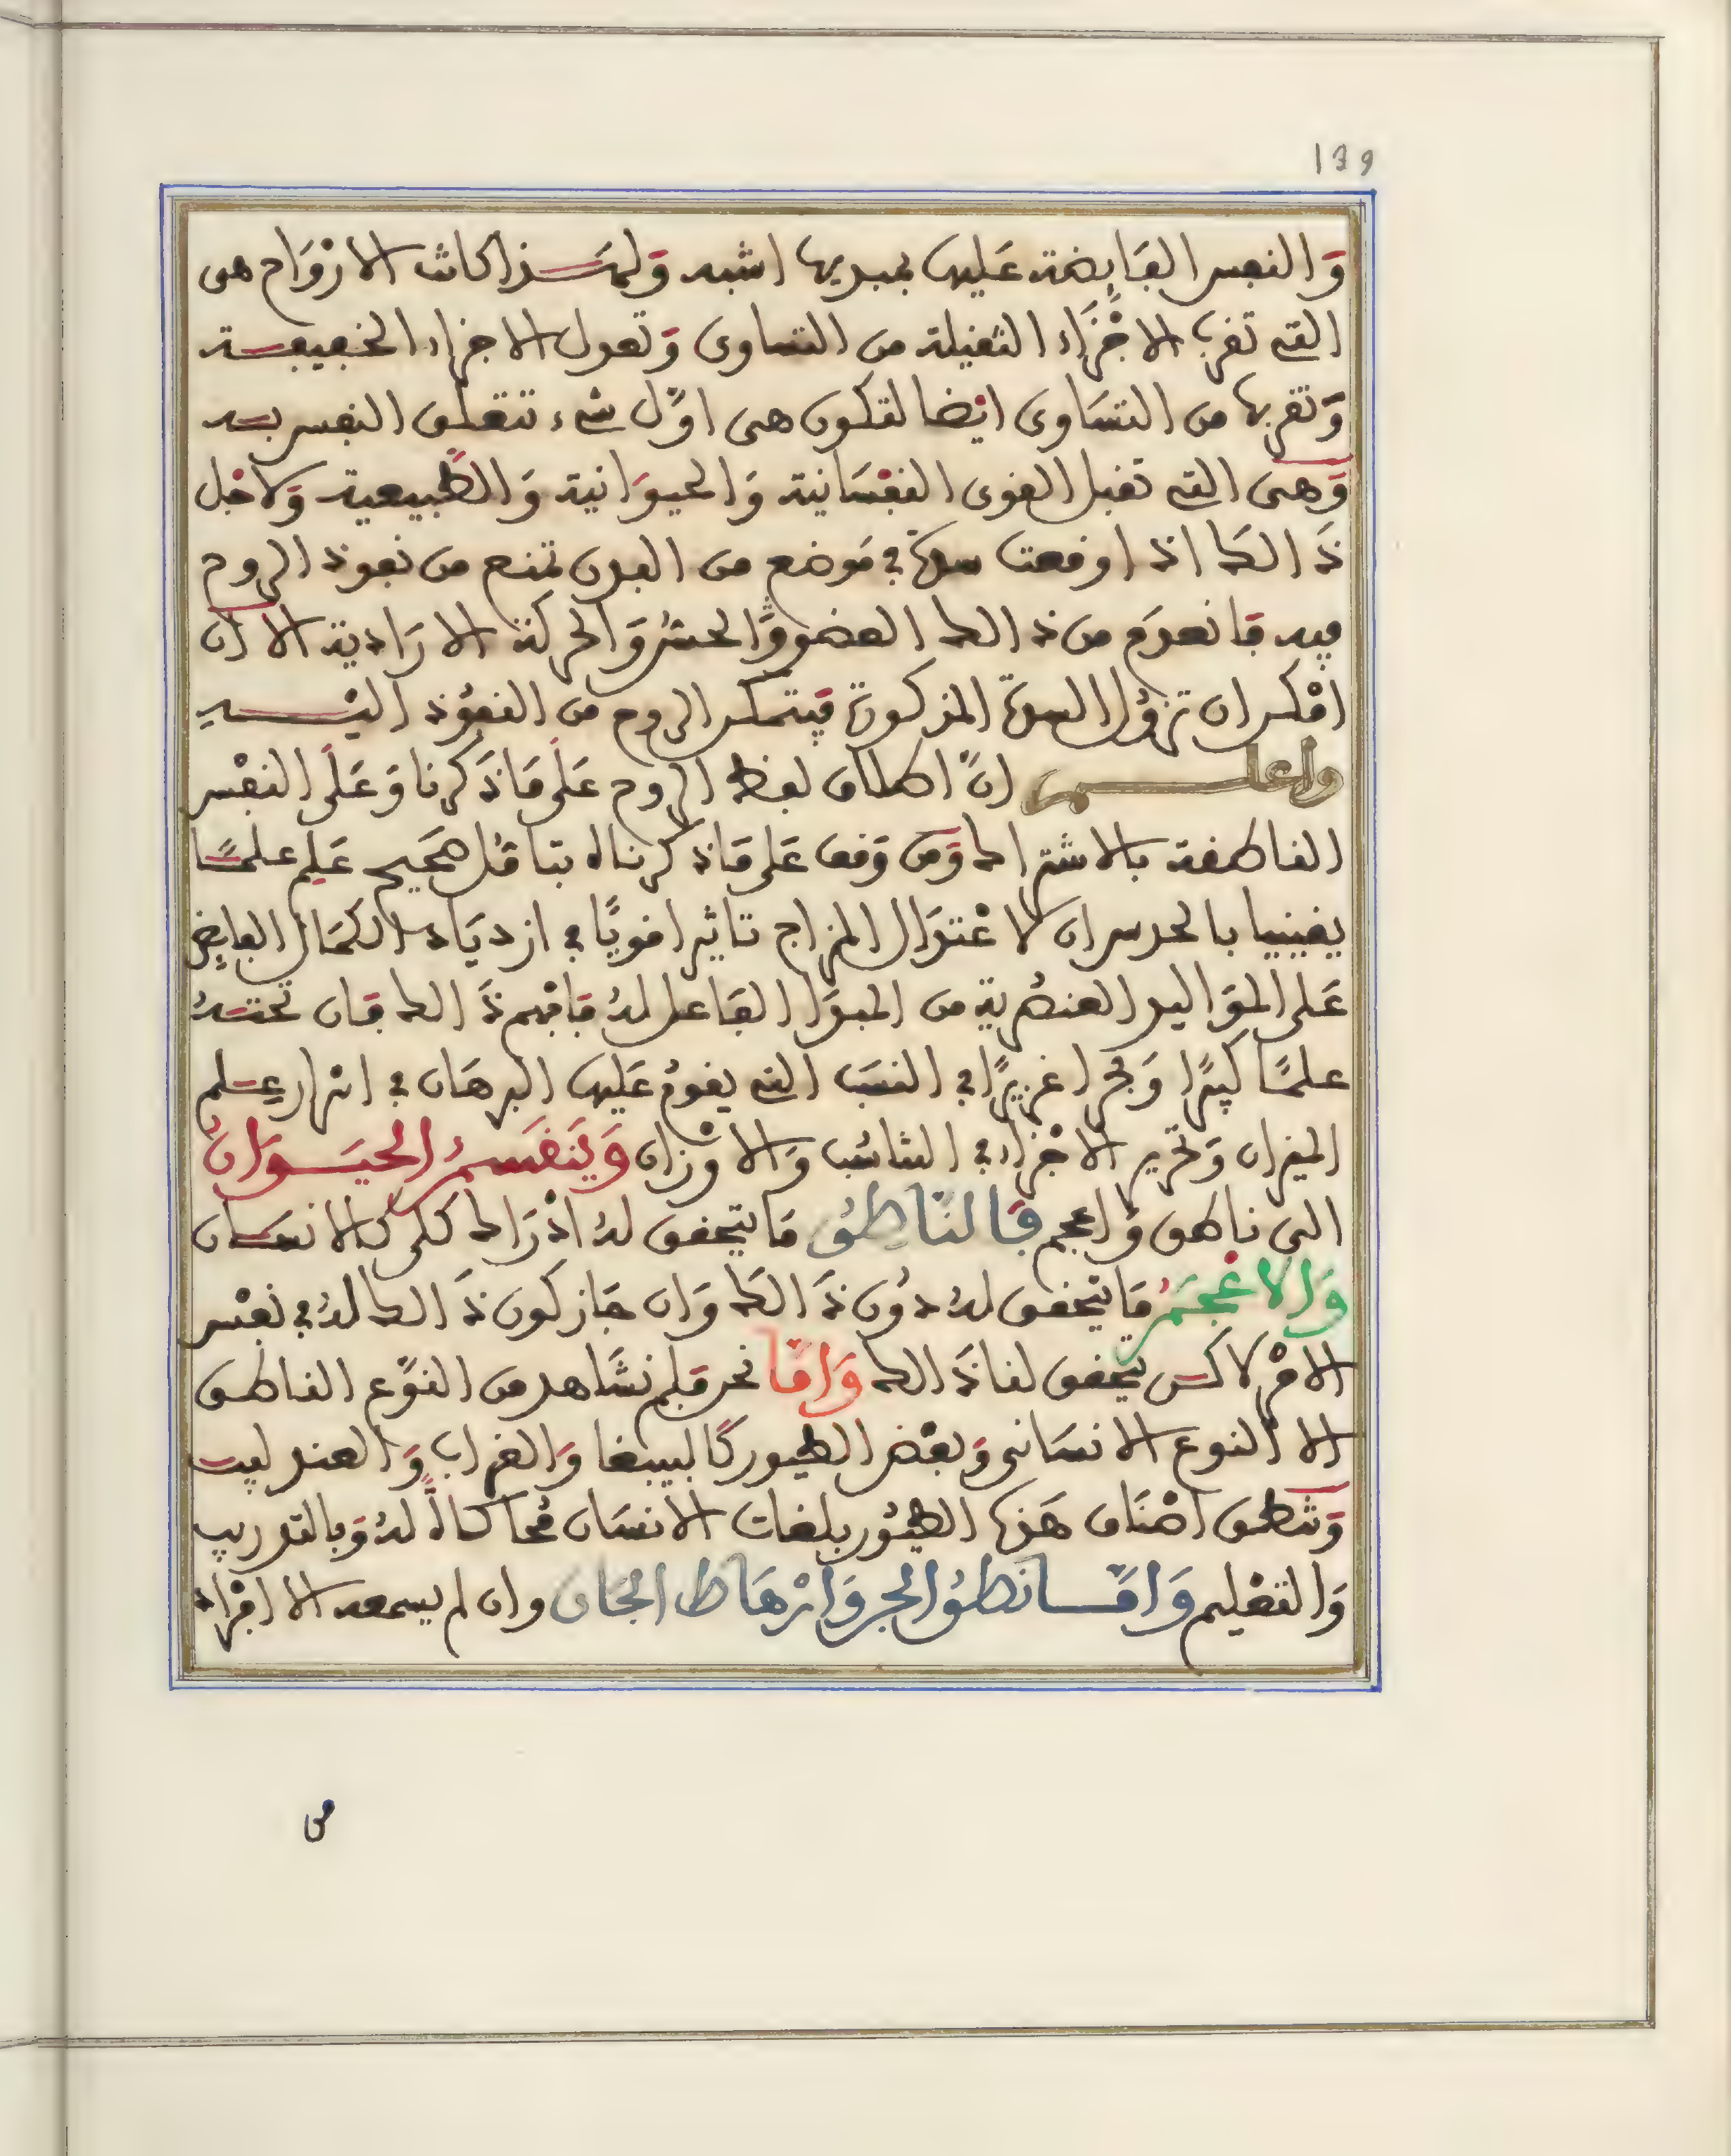 139
وَالنفس الفَايضة عَليها بمبديها اشبه وَلهـذا كانت الارْوَاح هى
التى تقرب الاجْزَاء الثقيلة من التساوى وَتعدل الاجزاء الخفيفـة
وَتقربها من التسَاوى ايْضا لتكون هى اوّل شىء تتعلق النفس بـه
وَهى التى تقبل القوى النفْسَانية وَالحيوَانية وَالطّبيعية وَلاجْل
ذَالك اذا وقعت سدة فى مَوْضع من البدن تمنع من نفوذ الروح
فيه فانعدَم من ذالك العضو وَالحسّ وَالحركة الارَادية الا ان
امْكن ان تزوُل السدة المذكورة فيتمكن الروح من النفوُذ اليْـه
واعلـم انّ اطلاق لفظ الروح عَلَى مَا ذَكرنا وَعَلَى النفْس
الناطقة بالاشتراك وَمن وَقف عَلى مَا ذكرناه بتامّل صَحيح عَلِم علمًـا
يقينيا بالحدس ان لاعْتدَال المزاج تاثيرا قويًّا فى ازديَاد الكمَال الفايض
عَلى الموَاليد العنصُرية من المبدَا الفَاعل لهُ فافهم ذَالك فان تحتـهُ
علمًا كبيرًا وَبحرا غزيرًا فى النسَب التى يقومُ عَليها البرهَان فى اسْرار عِـلم
الميزان وَتحرير الاجْزاء فى التنَاسُب وَالاوْزان وَيَنقَسـمُ الحيَـوَانُ
الى ناطق وَاعجم فَالنّاطِقُ مَا يتحقق لهُ ادْرَاك كلى كالانسَـان
وَالاعْجَـمُ مَا يتحقق لهُ دوُن ذَالك وَان جَاز كون ذَالك لهُ فى نفْس
الامْر لاكـن يتحقق لنا ذَالك وَامّا نحن فلم نشَاهد من النوْع الناطـق
الا النوع الانسَانى وَبعْض الطيور كَالببغا وَالغراب وَالعندليـب
وَتنطـق اصْنَاف هَذه الطيُور بلغات الانسَان مُحاكاةً لهُ وَبالتدريـب
وَالتعْليم وَامّـا نطقُ الجن وَارْهَاط الجَان وان لم يسمعه الا افْرَاد
من